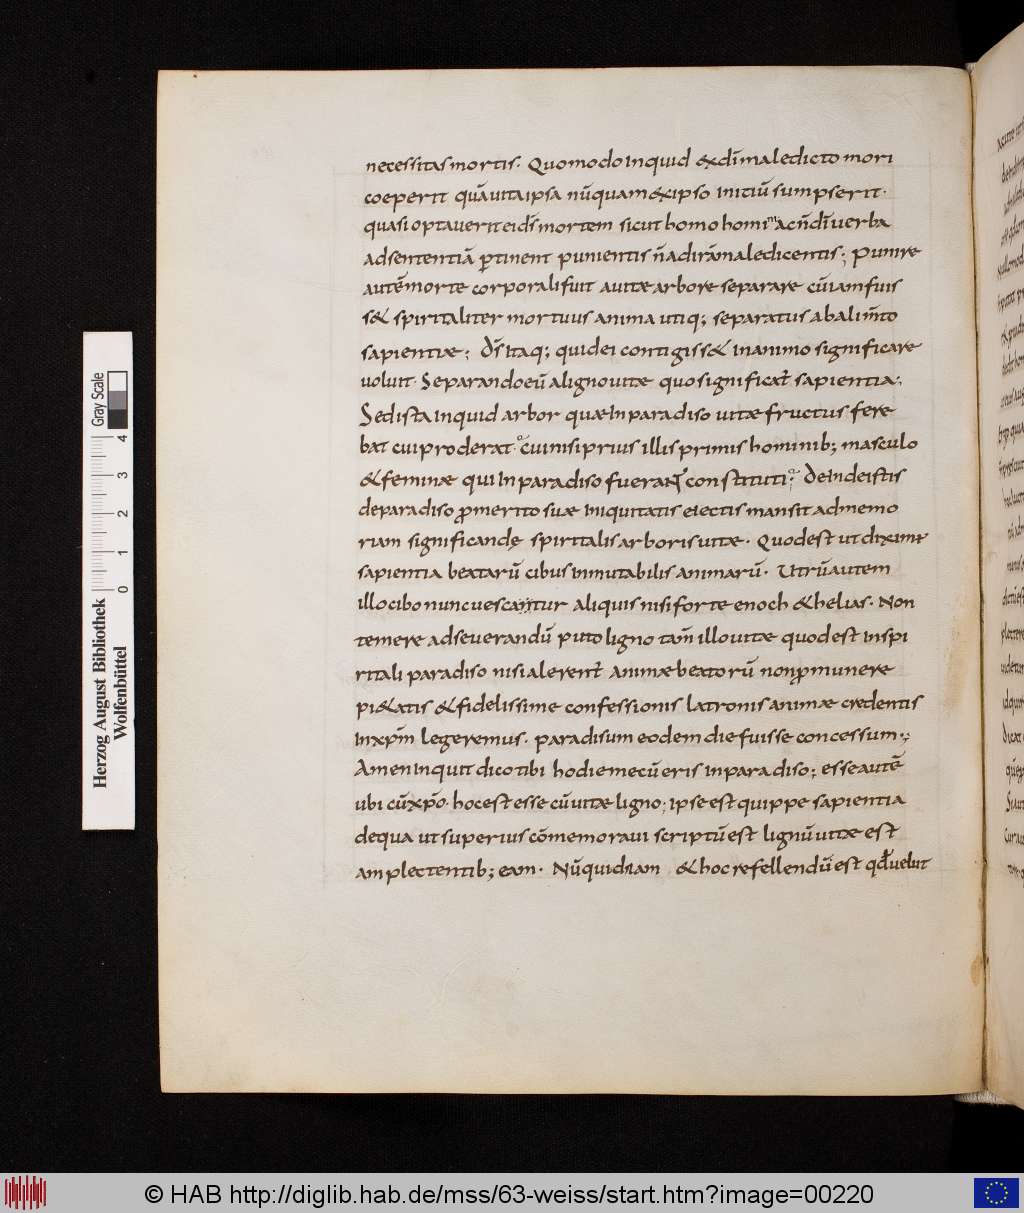 necessitas mortis. Quomodo inquid & dī maledicto mori
coeperit quā uita ipsa nūquam & ipso initiū sumpserit.
quasi optauerit ei d̄s mortem sicut homo homini ac n̄ dī uerba
ad sententiā ꝑtinent punientis n̄ ad irā maledicentis; Punire
autē morte corporali fuit a uitae arbore separare cū iam fuis
s& spiritaliter mortuus anima utiq; separatus ab alim̄to
sapientiae; D̄s itaq; qui dei contigiss& in animo significare
uoluit. Separando eū a ligno uitae quo significat̄ sapientia.
Sed ista inquid arbor quae in paradiso uitae fructus fere
bat cui proderat. cui nisi prius illis primis hominib; masculo
& feminae qui in paradiso fuerant constituti; Deinde istis
de paradiso ꝓ merito suae iniquitatis eiectis mansit ad memo
riam significandę spiritalis arboris uitae. Quod est ut diximꝰ
sapientia beatarū cibus inmutabilis animarū. Utrū autem
illo cibo nunc uescantur aliquis nisi forte enoch & helias. Non
temere adseuerandū puto ligno tam̄ illo uitae quod est in spi
ritali paradiso nisi alerent̄ animae beatorū non ꝓ munere
pi&atis & fidelissime confessionis latronis animae credentis
in xp̄m legeremus. paradisum eodem die fuisse concessum;
Amen inquit dico tibi hodie mecū eris in paradiso; esse autē
ubi cū xp̄o. hoc est esse cū uitae ligno; ipse est quippe sapientia
de qua ut superius cōmemoraui scriptū est lignū uitae est
amplectentib; eam. Nūquid iam & hoc refellendū est qd̄ uelut
Herzog August Bibliothek
Wolfenbüttel
0 1 2 3 4
Gray Scale
© HAB http://diglib.hab.de/mss/63-weiss/start.htm?image=00220